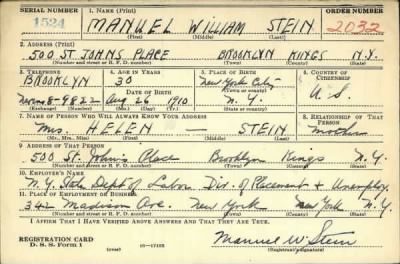 SERIAL NUMBER 1. NAME (Print) ORDER NUMBER
1524 MANUEL WILLIAM STEIN 2032
(First) (Middle) (Last)
2. ADDRESS (Print)
500 ST. JOHNS PLACE BROOKLYN KINGS N.Y.
(Number and street or R. F. D. number) (Town) (County) (State)
3. TELEPHONE 4. AGE IN YEARS 5. PLACE OF BIRTH 6. COUNTRY OF CITIZENSHIP
BROOKLYN 30 New York City
DATE OF BIRTH (Town or county)
8-9822 Aug 26 1910 N.Y. U.S.
(Exchange) (Number) (Mo.) (Day) (Yr.) (State or country)
7. NAME OF PERSON WHO WILL ALWAYS KNOW YOUR ADDRESS 8. RELATIONSHIP OF THAT PERSON
Mrs. HELEN — STEIN mother
(Mr., Mrs., Miss) (First) (Middle) (Last)
9. ADDRESS OF THAT PERSON
500 St. John's Place Brooklyn Kings N.Y.
(Number and street or R. F. D. number) (Town) (County) (State)
10. EMPLOYER'S NAME
N.Y. State Dept of Labor Div. of Placement & Unemploy.
11. PLACE OF EMPLOYMENT OR BUSINESS
342 Madison Ave. New York New York N.Y.
(Number and street or R. F. D. number) (Town) (County) (State)
I AFFIRM THAT I HAVE VERIFIED ABOVE ANSWERS AND THAT THEY ARE TRUE.
REGISTRATION CARD
D. S. S. Form 1 (over) 16-17105 Manuel W. Stein
(Registrant's signature)